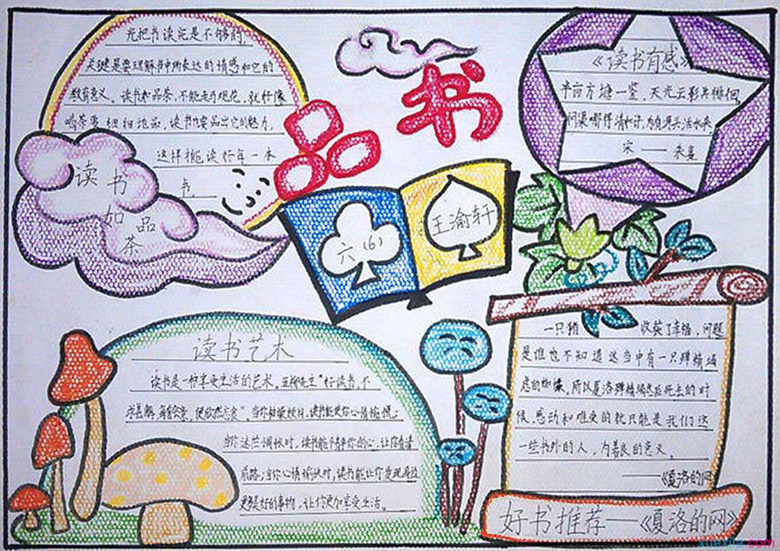 光把书读完是不够的,
关键是要理解书中所表达的情感和它的
教育意义。读书如品茶,不能走马观花,就好像
喝茶要细细地品,读书也要品出它的魅力,
这样才能读好每一本
书
读书
如品
茶
品书
六(6)
王渝轩
《读书有感》
半亩方塘一鉴,天光云影共徘徊,
问渠哪得清如许,为有源头活水来
宋——朱熹
读书艺术
读书是一种享受生活的艺术。五柳先生"好读书,不
求甚解,每有会意,便欣然忘食"。当你枯燥
读书能
当你迷茫
时,读书能平静你的心,让你看清
前路;当你心情愉快时,读书能让你发现身边
更美好的事物,让你更加享受生活。
一只猪
收获了幸福,问题
是谁也不知道这当中有一只
所以夏洛
死去的时
候,感动和难受的就只能是我们这
一些书外的人,
的意义。
——《夏洛的网》
好书推荐——《夏洛的网》